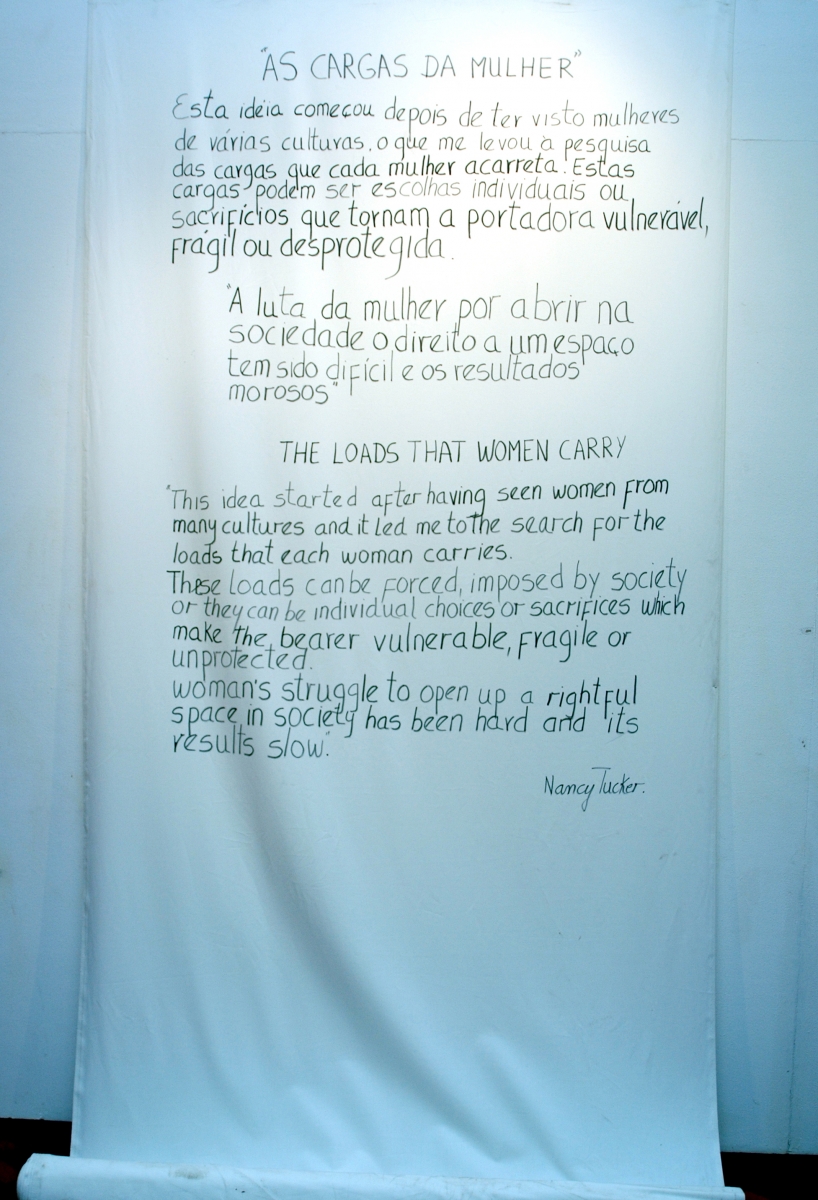 "AS CARGAS DA MULHER"
Esta idéia começou depois de ter visto mulheres
de várias culturas, o que me levou à pesquisa
das cargas que cada mulher acarreta. Estas
cargas podem ser escolhas individuais ou
sacrifícios que tornam a portadora vulnerável,
frágil ou desprotegida.
"A luta da mulher por abrir na
sociedade o direito a um espaço
tem sido difícil e os resultados
morosos"
THE LOADS THAT WOMEN CARRY
"This idea started after having seen women from
many cultures and it led me to the search for the
loads that each woman carries.
These loads can be forced, imposed by society
or they can be individual choices or sacrifices which
make the bearer vulnerable, fragile or
unprotected.
woman's struggle to open up a rightful
space in society has been hard and its
results slow."
Nancy Tucker.